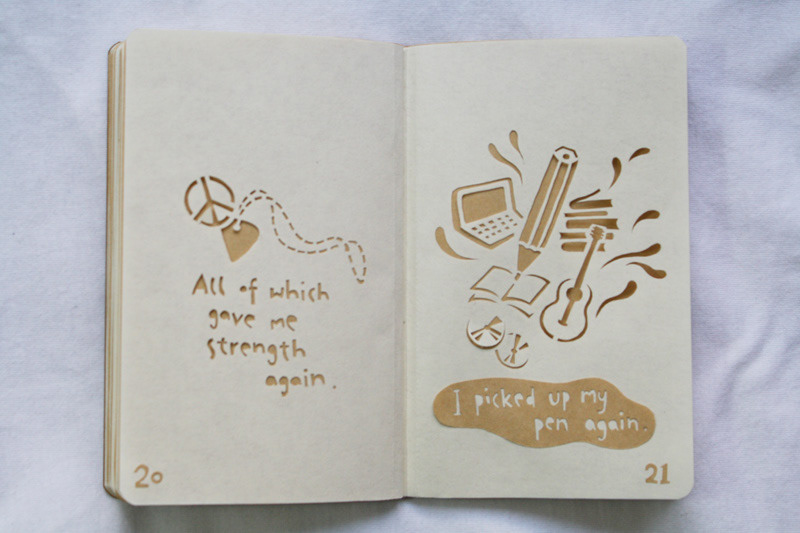 All of which
gave me
strength
again.
20
I picked up my
pen again.
21